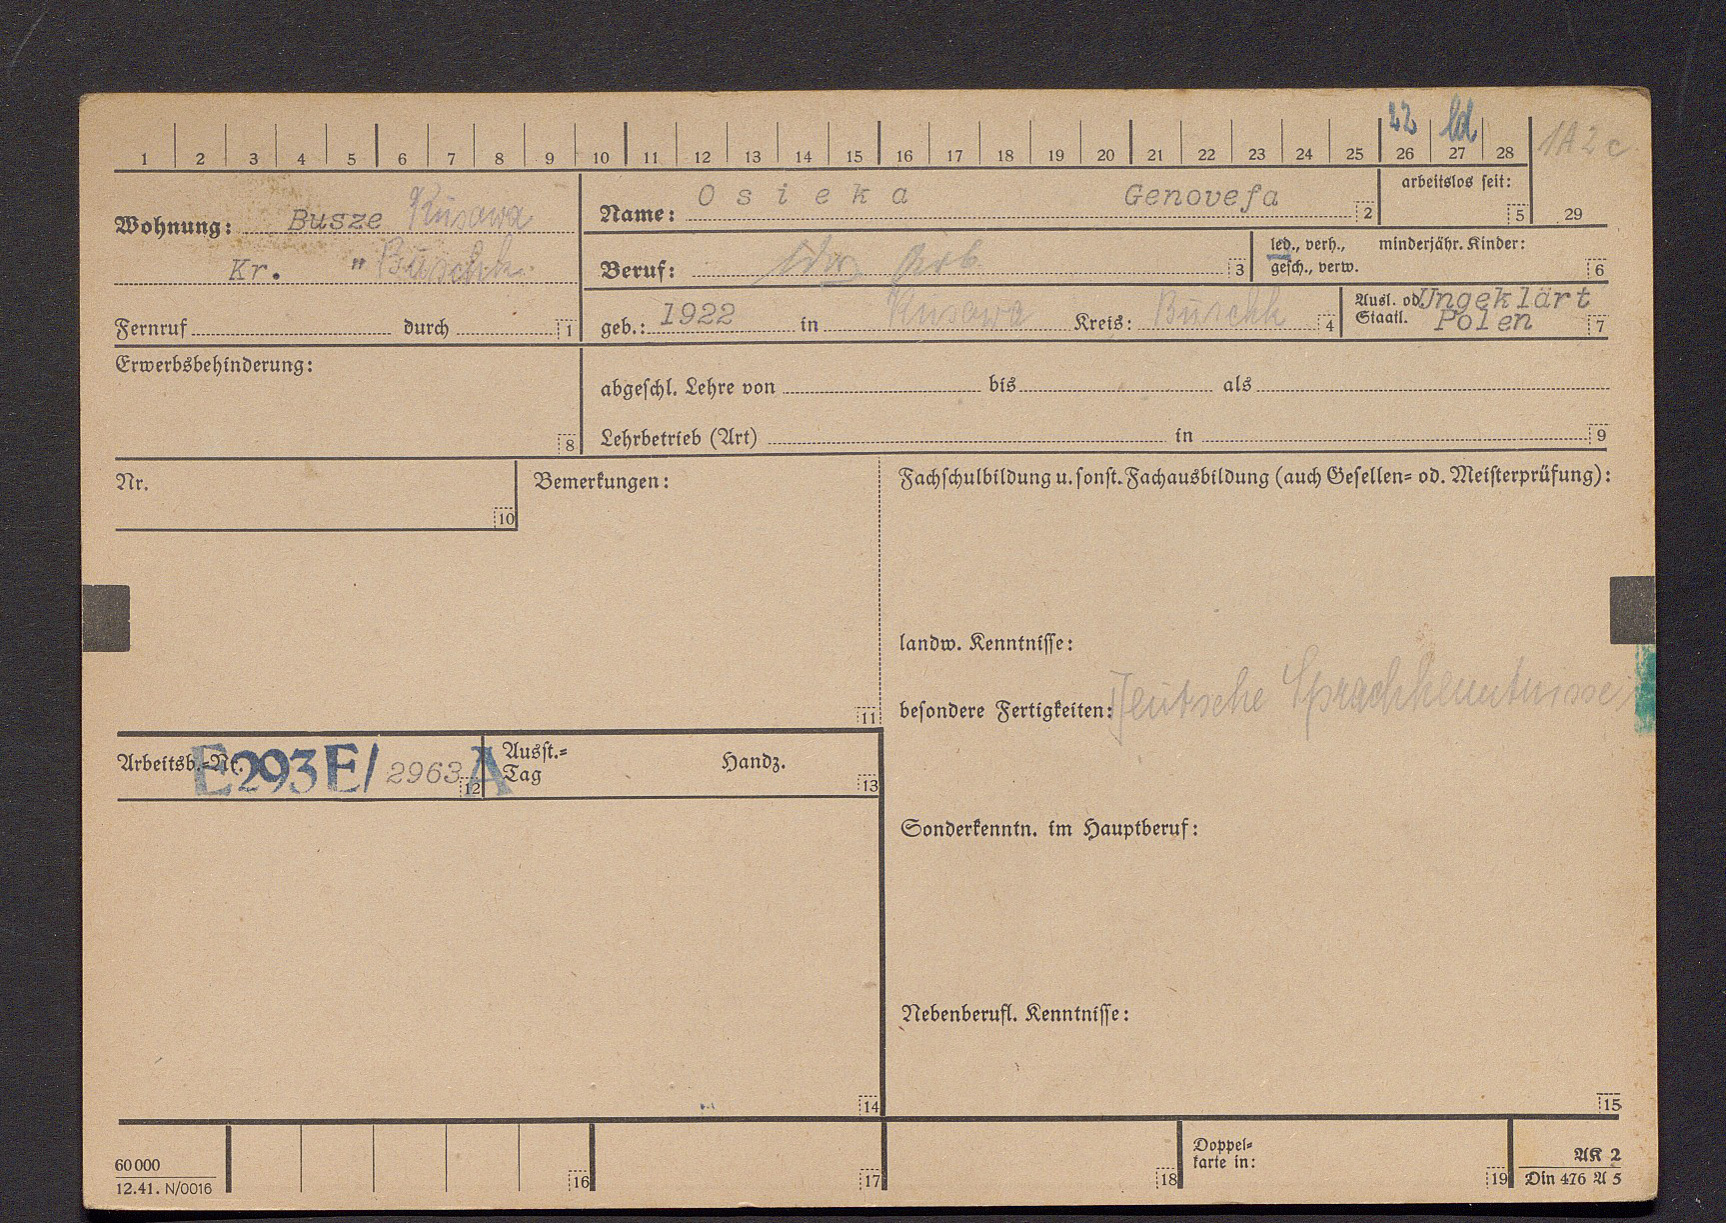 22 ld
1 2 3 4 5 6 7 8 9 10 11 12 13 14 15 16 17 18 19 20 21 22 23 24 25 26 27 28 1A2c
Wohnung: Busze Kusawa
Kr. " Buschk.
Fernruf durch 1
Name: Osieka Genovefa 2
arbeitslos seit: 5 29
Beruf: Arb. 3
led., verh., gesch., verw.
minderjähr. Kinder: 6
geb.: 1922 in Kusawa Kreis: Buschk 4
Ausl. od. Ungeklärt
Staatl. Polen 7
Erwerbsbehinderung: 8
abgeschl. Lehre von bis als
Lehrbetrieb (Art) in 9
Nr. 10
Bemerkungen: 11
Fachschulbildung u. sonst. Fachausbildung (auch Gesellen- od. Meisterprüfung):
landw. Kenntnisse:
besondere Fertigkeiten: Deutsche Sprachkenntnisse
Arbeitsb.-Nr. E293E/ 2963 A 12
Ausst.-
Tag Handz. 13
Sonderkenntn. im Hauptberuf:
Nebenberufl. Kenntnisse:
14 15
60000
12.41. N/0016
16 17 18
Doppel-
karte in: 19
AK 2
Din 476 A 5